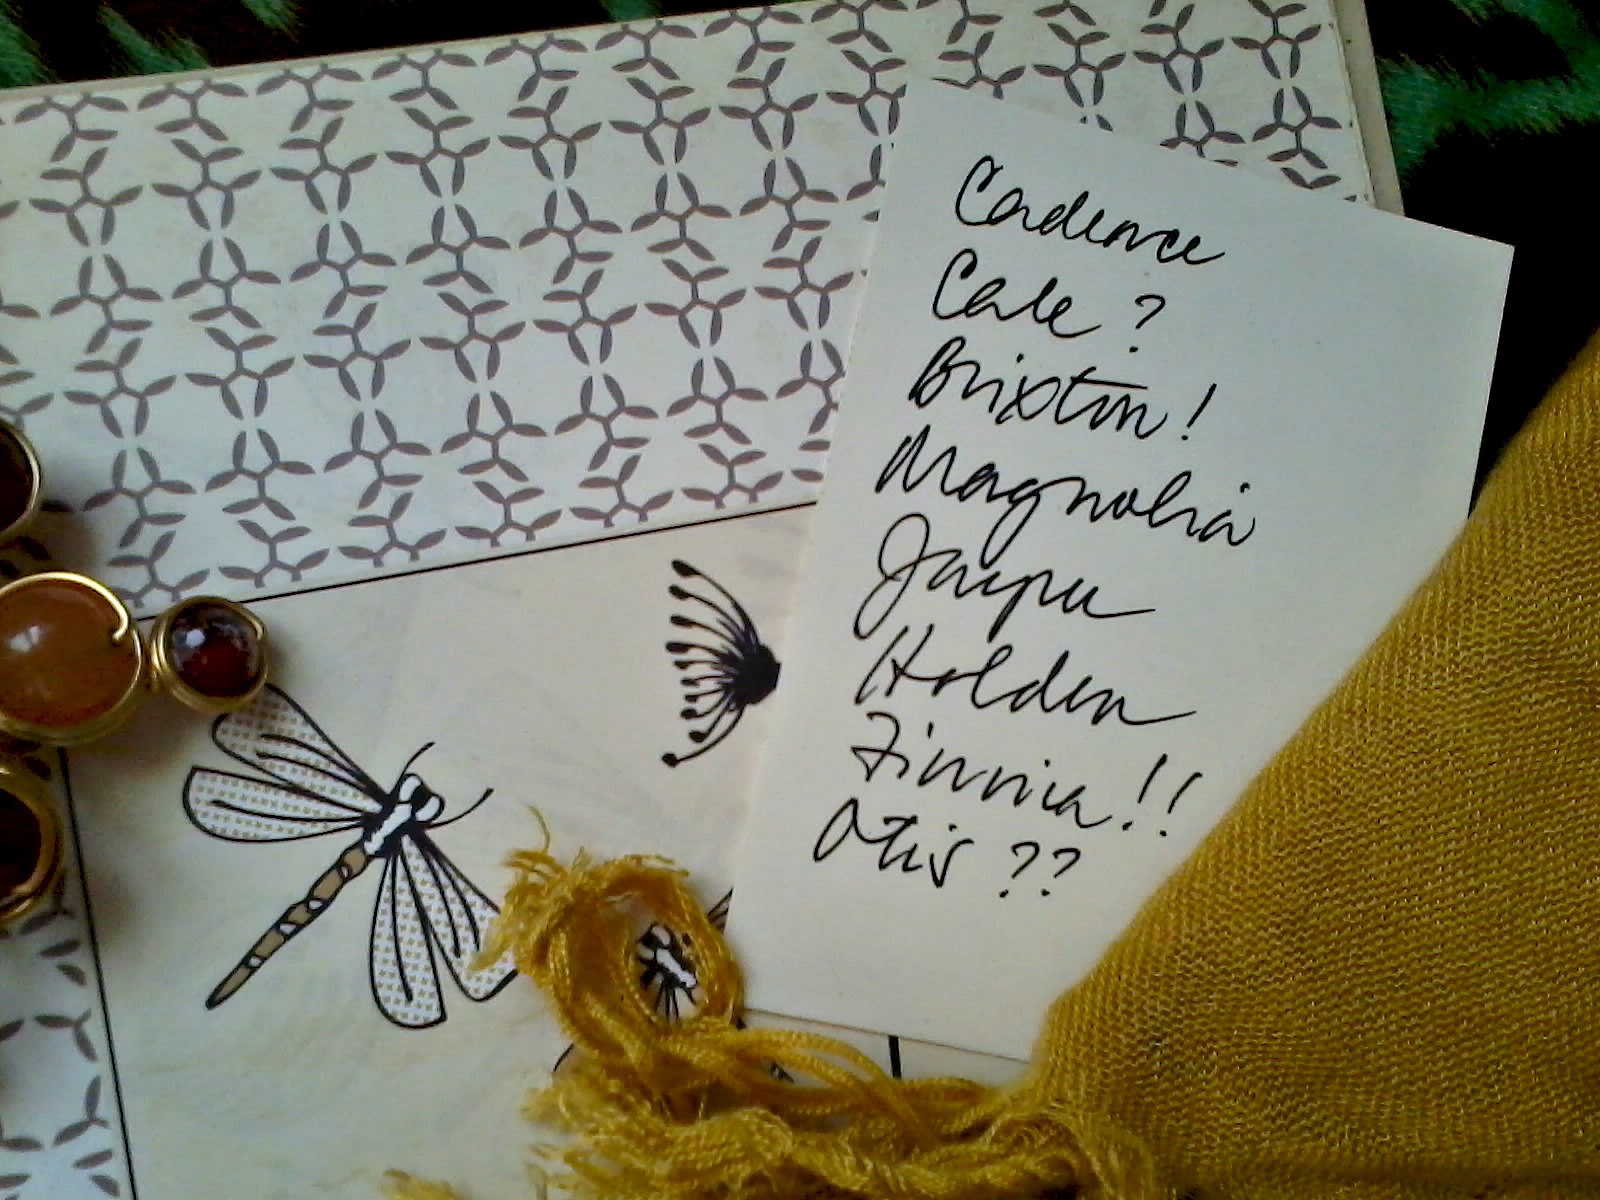 Cadence
Cale ?
Brixton !
Magnolia
Holden
Zinnia !!
Otis ??